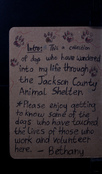 Intro: This a collection
of dogs who have wandered
into my life through
the Jackson County
Animal Shelter.
* Please enjoy getting
to know some of the
dogs who have touched
the lives of those who
work and volunteer
here. - Bethany